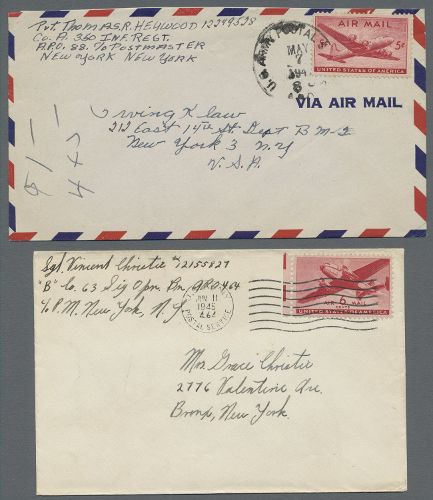 Pvt. Thomas.R. HEYWOOD 12249528
Co. A. 360 INF. REGT.
A.P.O. 88. % POSTMASTER
NEW YORK NEW YORK
U.S. ARMY POSTAL S
MAY
7
194
AIR MAIL
5¢
UNITED STATES OF AMERICA
VIA AIR MAIL
Irving K law
212 East 14th St. Dept B M-2
New York 3 N.Y
U.S.A.
Sgt. Vincent Christie 12155827
"B" Co. 63 Sig Opn. Bn. APO 464
% P.M. New York, N.Y.
JUN 11
1945
464
POSTAL SERVICE
AIR 6¢ MAIL
UNITED STATES OF AMERICA
Mrs Grace Christie
2776 Valentine Ave.
Bronx, New York.